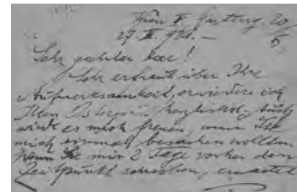 Wien V.
27. III. 931. —
Sehr geehrter Herr!
Sehr erfreut über Ihre
Aufmerksamkeit, erwidere ich
Ihren Ostergruß herzlichst. Auch
wird es mich freuen, wenn Sie
mich einmal besuchen wollten
wenn Sie mir 2 Tage vorher den
Zeitpunkt schreiben, erwartet